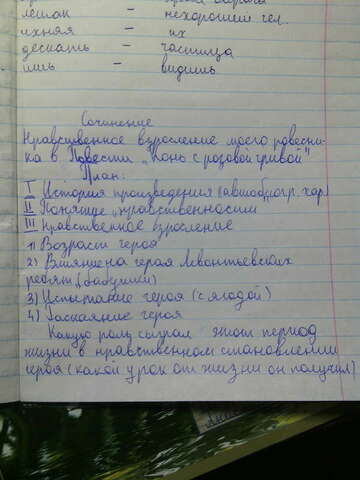 лешак - нехороший чел.
ихняя - их
дескать - частица
ишь - видишь
Сочинение
Нравственное взросление моего ровесни-
ка в Повести "Конь с розовой гривой"
План:
I История произведения (автобиогр. хар)
II Понятие "нравственности
III Нравственное взросление
1) Возраст героя
2) Влияние на героя Левонтьевских
ребят, (бабушки)
3) Испытание героя (с ягодой)
4) Раскаяние героя
Какую роль сыграл этот период
жизни в нравственном становлении
героя (какой урок от жизни он получил)